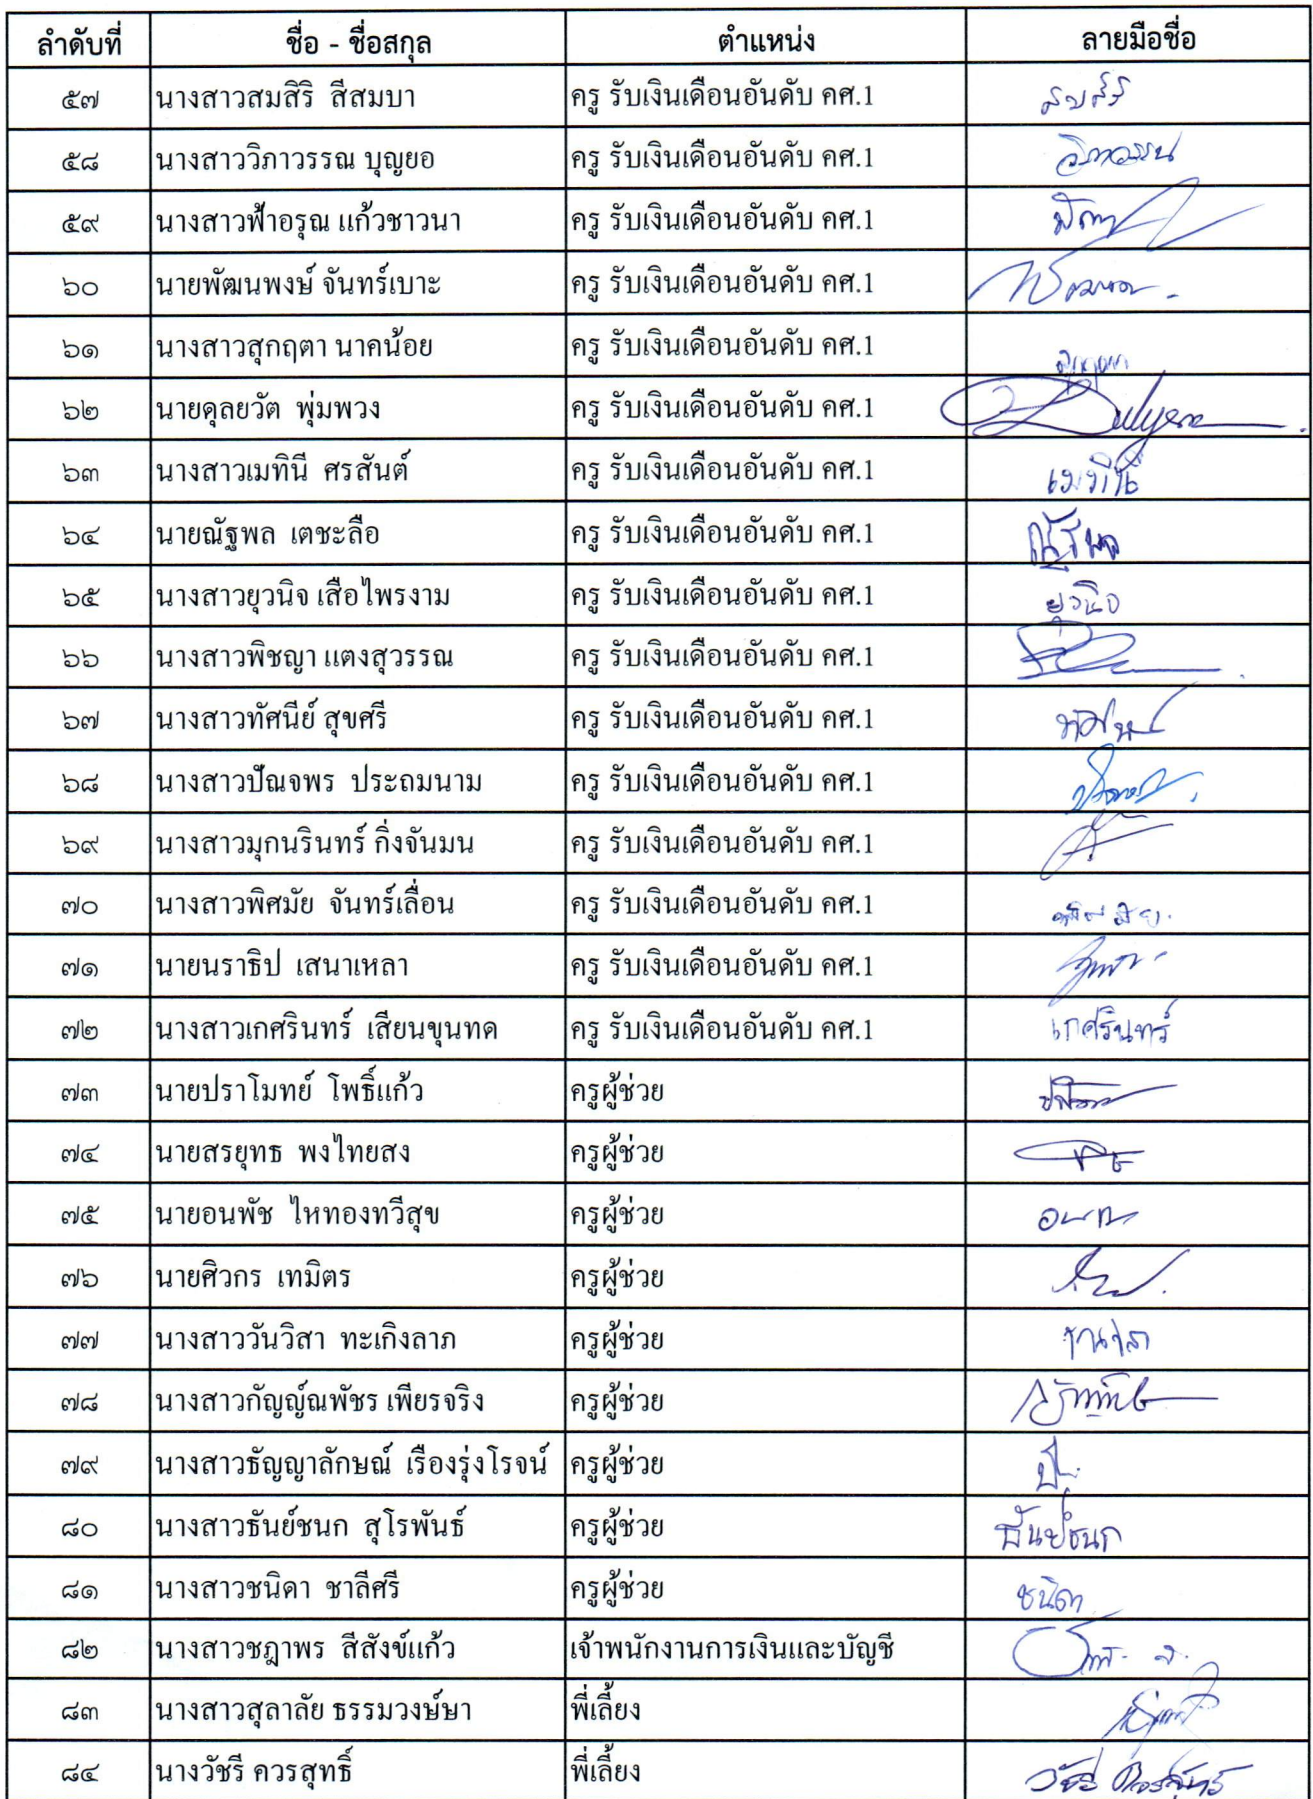 ลำดับที่ ชื่อ - ชื่อสกุล ตำแหน่ง ลายมือชื่อ
๕๗ นางสาวสมสิริ สีสมบา ครู รับเงินเดือนอันดับ คศ.1 สมสิริ
๕๘ นางสาววิภาวรรณ บุญยอ ครู รับเงินเดือนอันดับ คศ.1 วิภาวรรณ
๕๙ นางสาวฟ้าอรุณ แก้วชาวนา ครู รับเงินเดือนอันดับ คศ.1
๖๐ นายพัฒนพงษ์ จันทร์เบาะ ครู รับเงินเดือนอันดับ คศ.1
๖๑ นางสาวสุกฤตา นาคน้อย ครู รับเงินเดือนอันดับ คศ.1
๖๒ นายดุลยวัต พุ่มพวง ครู รับเงินเดือนอันดับ คศ.1
๖๓ นางสาวเมทินี ศรสันต์ ครู รับเงินเดือนอันดับ คศ.1 เมทินี
๖๔ นายณัฐพล เตชะลือ ครู รับเงินเดือนอันดับ คศ.1 ณัฐพล
๖๕ นางสาวยุวนิจ เสือไพรงาม ครู รับเงินเดือนอันดับ คศ.1 ยุวนิจ
๖๖ นางสาวพิชญา แตงสุวรรณ ครู รับเงินเดือนอันดับ คศ.1
๖๗ นางสาวทัศนีย์ สุขศรี ครู รับเงินเดือนอันดับ คศ.1
๖๘ นางสาวปัณจพร ประถมนาม ครู รับเงินเดือนอันดับ คศ.1
๖๙ นางสาวมุกนรินทร์ กิ่งจันมน ครู รับเงินเดือนอันดับ คศ.1
๗๐ นางสาวพิศมัย จันทร์เลื่อน ครู รับเงินเดือนอันดับ คศ.1 พิศมัย
๗๑ นายนราธิป เสนาเหลา ครู รับเงินเดือนอันดับ คศ.1
๗๒ นางสาวเกศรินทร์ เสียนขุนทด ครู รับเงินเดือนอันดับ คศ.1 เกศรินทร์
๗๓ นายปราโมทย์ โพธิ์แก้ว ครูผู้ช่วย
๗๔ นายสรยุทธ พงไทยสง ครูผู้ช่วย
๗๕ นายอนพัช ไหทองทวีสุข ครูผู้ช่วย
๗๖ นายศิวกร เทมิตร ครูผู้ช่วย
๗๗ นางสาววันวิสา ทะเกิงลาภ ครูผู้ช่วย
๗๘ นางสาวกัญญ์ณพัชร เพียรจริง ครูผู้ช่วย
๗๙ นางสาวธัญญาลักษณ์ เรืองรุ่งโรจน์ ครูผู้ช่วย
๘๐ นางสาวธันย์ชนก สุโรพันธ์ ครูผู้ช่วย ธันย์ชนก
๘๑ นางสาวชนิดา ชาลีศรี ครูผู้ช่วย ชนิดา
๘๒ นางสาวชฎาพร สีสังข์แก้ว เจ้าพนักงานการเงินและบัญชี
๘๓ นางสาวสุลาลัย ธรรมวงษ์ษา พี่เลี้ยง
๘๔ นางวัชรี ควรสุทธิ์ พี่เลี้ยง